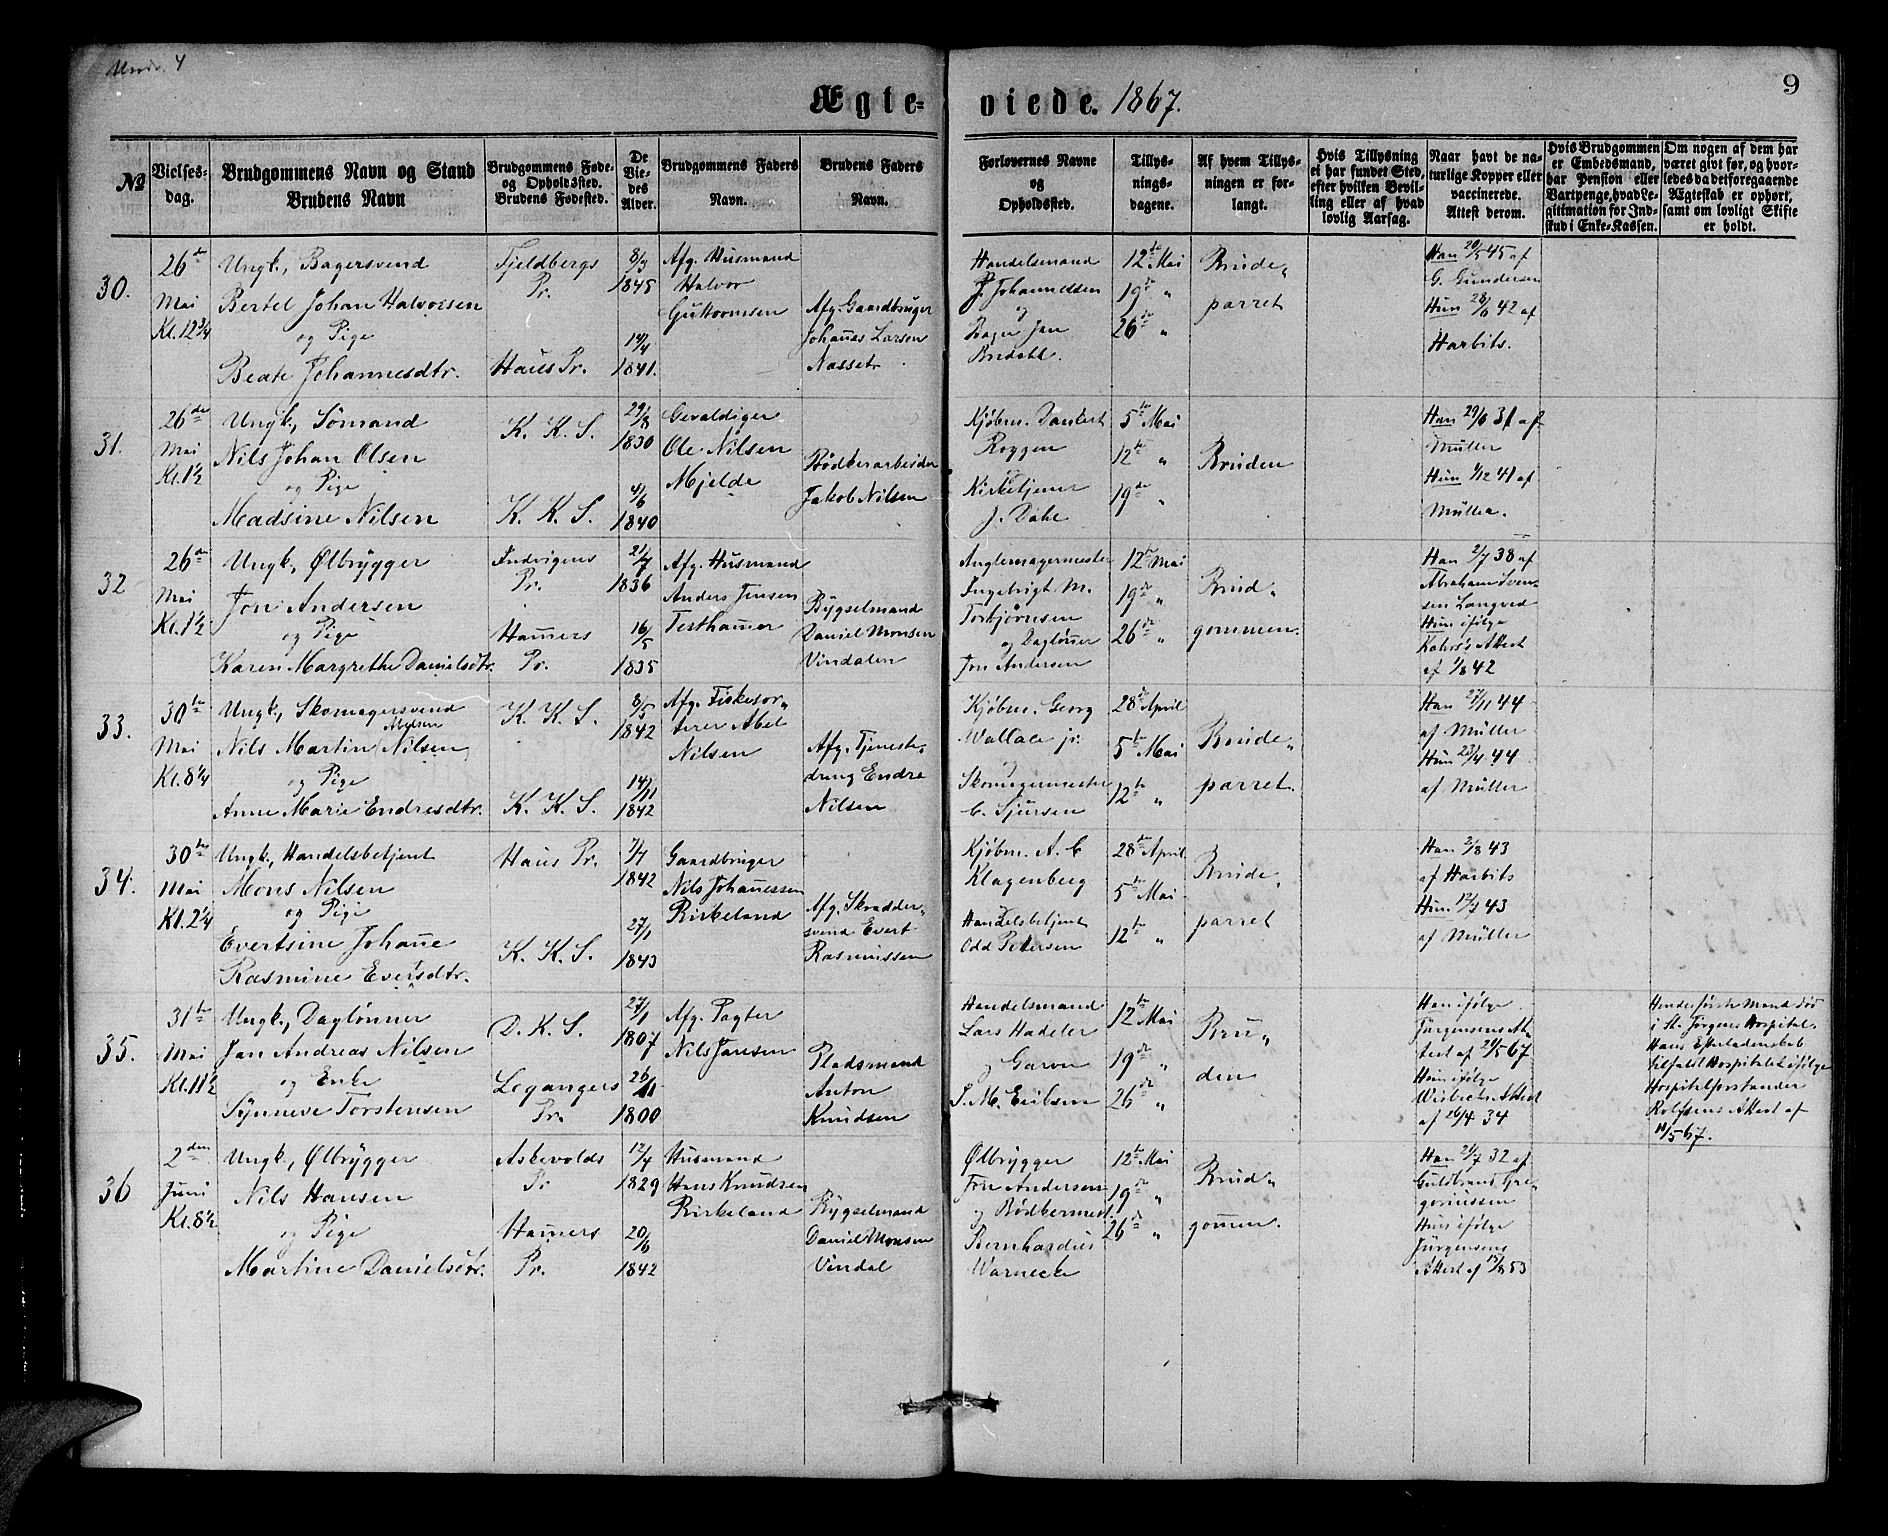 Ægte-
viede. 1867.
9
No
Vielses-
dag.
Brudgommens Navn og Stand
Brudens Navn
Brudgommens Føde-
og Opholdssted.
Brudens Fødested.
De
Vie-
des
Alder.
Brudgommens Faders
Navn.
Brudens Faders
Navn.
Forlovernes Navne
og
Opholdssted.
Tillys-
nings-
dagene.
Af hvem Tillys-
ningen er for-
langt.
Hvis Tillysning
ei har fundet Sted,
efter hvilken Bevil-
ling eller af hvad
lovlig Aarsag.
Naar havt de na-
turlige Kopper eller
vaccinerede.
Attest derom.
Hvis Brudgommen
er Embedsmand,
har Pension eller
Vartpenge, hvad Le-
gitimation for Ind-
skud i Enke-Kassen.
Om nogen af dem har
været givt før, og hvor-
ledes da det foregaaende
Ægteskab er ophørt,
samt om lovligt Skifte
er holdt.
30.
26de
Mai
Kl. 12 3/4
Ungk., Bagersvend
Bertel Johan Halvorsen
og Pige
Beate Johannesdtr.
Fjeldbergs
Pr.
Haus Pr.
8/3
1845
14/4
1841.
Afg. Husmand
Halvor
Guttormsen
Afg. Gaardbruger
Johañes Larsen
Nassetr
Handelsmand
J. Johannessen
og
Bager Jan
Bredahl.
12te Mai
19de "
26de "
Brude"
parret
Han 20/5 45 af
G. Gundersen
Hun 28/6 42 af
Harbits.
31.
26de
Mai
Kl. 1 1/2
Ungk., Sömand
Nils Johan Olsen
og Pige
Madsine Nilsen
K. K. S.
K. K. S.
29/8
1830
4/6
1840
Gevaldiger
Ole Nilsen
Mjelde
Bödkerarbeider
Jakob Nilsen
Kjöbm. Dankert
Roggen
Kirketjener
J. Dahl
5te Mai
12te "
19de "
Bruden
Han 29/6 31 af
Müller
Hun 1/12 41 af
Müller.
32
26de
Mai
Kl. 1 1/2
Ungk., Ølbrÿgger
Jon Andersen
og Pige
Karen Margrethe Danielsdtr.
Indvigens
Pr.
Hamers
Pr.
21/7
1836
16/5
1835
Afg. Husmand
Anders Jensen
Testhamer
Bÿgselmand
Daniel Monsen
Vindalen
Anglemagermester
Ingebrigt M.
Torbjörnsen
og Daglöner
Jon Andersen
12te Mai
19de "
26de "
Brud"
gommen.
Han 2/7 38 af
Abraham Sven-
sen Langved
Hun ifölge
Kahrs's Attest
af 1/8 42
33.
30te
Mai
Kl. 8 1/4
Ungk., Skomagersvend
Abelsen
Nils Martin Nilsen
og Pige
Anne Marie Endresdtr.
K. K. S.
K. K. S.
8/5
1842
14/11
1842
Afg. Fiskesor"
terer Abel
Nilsen
Afg. Tjeneste"
dreng Endre
Nilsen
Kjöbm. Georg
Wallace jr.
Skomagermester
C. Sjursen
28de April
5te Mai
12te "
Brude"
parret.
Han 27/11 44
af Müller
Hun 23/4 44
af Müller
34.
30te
Mai
Kl. 2 1/4
Ungk., Handelsbetjent
Mons Nilsen
og Pige
Evertsine Johañe
Rasmine Evertsdtr.
Haus Pr.
K. K. S.
7/7
1842
27/1
1843
Gaardbruger
Nils Johañessen
Birkeland
Afg. Skrædder"
svend Evert
Rasmussen
Kjöbm. A. C
Klagenberg
Handelsbetjent
Odd Petersen
28de April
5te Mai
12te "
Brude"
parret
Han 2/8 43
af Harbits
Hun 12/7 43
af Müller
35.
31te
Mai
Kl. 11 1/2
Ungk., Daglönner
Jan Andreas Nilsen
og Enke
Sÿnneve Torstensen
D. K. S.
Leganger
Pr.
27/1
1807
26/11
1800
Afg. Pagter
Nils Jansen
Pladsmand
Anton
Knudsen
Handelsmand
Lars Hadeler
Garver
S. M. Eriksen
12te Mai
19de "
26de "
Bru"
den
Han ifölge
Jürgensens At-
test af 24/5 67
Hun ifölge
Wisbechs Attest
af 26/4 34
Hendes förste Mand döde
i St. Jörgens Hospital.
Hans Efterladenskab
tilfaldt Hospitalet ifölge
Hospitalforstander
Rolfsens Attest af
11/5 67.
36
2den
Juni
Kl. 8 1/2
Ungk., Ølbrÿgger
Nils Hansen
og Pige
Martine Danielsdtr.
Askevolds
Pr
Hamers
Pr.
12/4
1829
20/6
1842
Husmand
Hans Knudsen
Birkeland
Bÿgselmand
Daniel Monsen
Vindal
Ølbrÿgger
Jon Andersen
og Bödkermest.
Bernhardus
Warnecke
12te Mai
19de "
26de "
Brud"
gomen.
Han 21/7 32 af
Guldbrand Gre-
goriussen
Hun ifölge
Jürgensens
Attest af 15/8 53